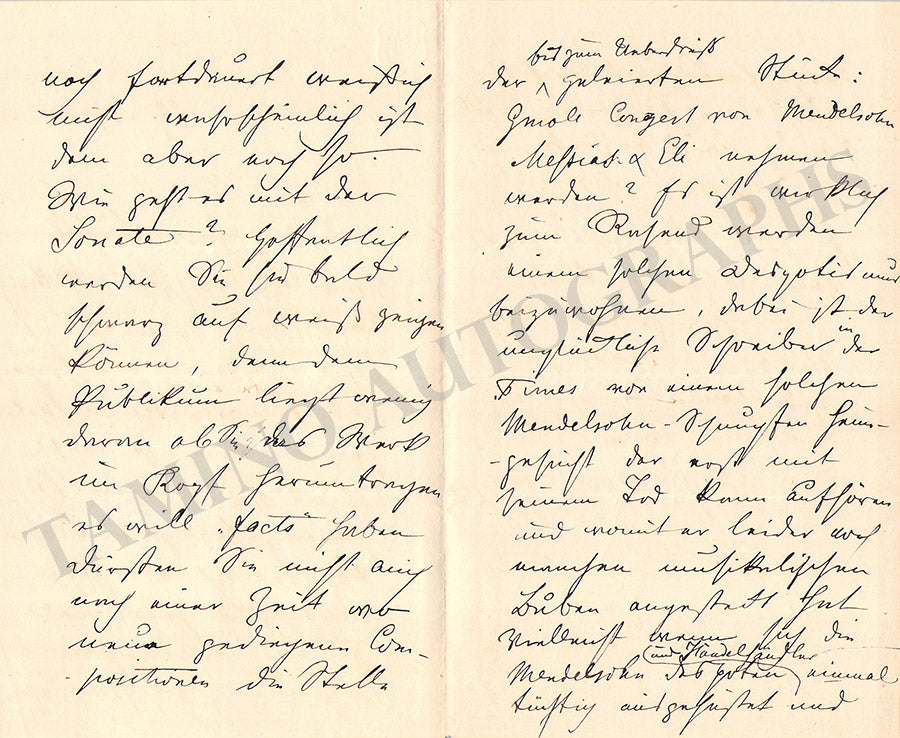 noch fortdauert weiß ich
nicht wahrscheinlich ist
dem aber noch so.
Wie geht es mit der
Sonate? Hoffentlich
werden Sie sie bald
schwarz auf weiß zeigen
können, denn dem
Publikum liegt wenig
daran ob Sie das Werk
im Kopf herumtragen
es will „facts“ haben
Dürsten Sie nicht auch
nach einer Zeit wo
neue gediegene Com-
-positionen die Stelle
bis zum Ueberdruß
der geleierten Stücke:
Gmoll Conzert von Mendelsohn
Messias & Eli nehmen
werden? Es ist wirklich
zum Rasend werden
einem solchen Despotismus
beizuwohnen, dabei ist der
unglückliche Schreiber in der
Times von einem solchen
Mendelsohn-Schnupfen heim-
-gesucht der erst mit
seinem Tod kann aufhören
und womit er leider noch
manchen musikalischen
Buben angesteckt hat
Vielleicht wenn sich die
und Händel händler
Mendelsohn despoten einmal
tüchtig ausgehustet und
TAMINO AUTOGRAPHS